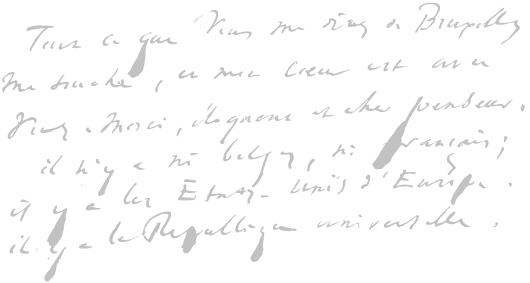 Tout ce que Vous me dites de Bruxelles
me touche, et mon cœur est avec
Vous. Merci, éloquent et cher penseur.
il n'y a ni belges, ni français;
il y a les États-Unis d'Europe.
il y a la République universelle.